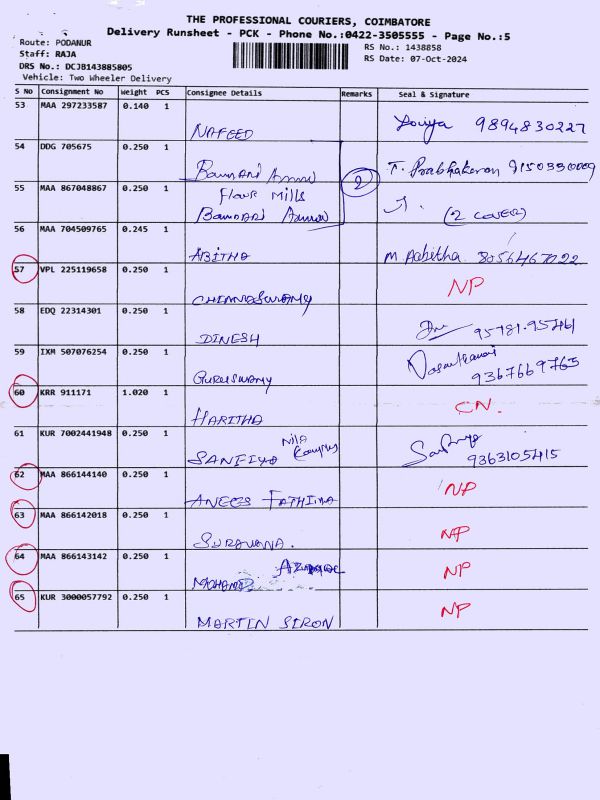 THE PROFESSIONAL COURIERS, COIMBATORE
Delivery Runsheet - PCK - Phone No.:0422-3505555 - Page No.:5
Route: PODANUR
RS No.: 1438858
Staff: RAJA
RS Date: 07-Oct-2024
DRS No.: DCJB143885805
Vehicle: Two Wheeler Delivery
S No Consignment No Weight PCS Consignee Details Remarks Seal & Signature
53 MAA 297233587 0.140 1 NAFEED 9894830227
54 DDG 705675 0.250 1 Bannari Amman T. Prabhakaran 9150350009
Flour Mills
2
55 MAA 867048867 0.250 1 Bannari Amman (2 COVER)
56 MAA 704509765 0.245 1 ABITHA M. Aabitha 8056467022
57 VPL 225119658 0.250 1 CHINNASWAMY NP
58 EDQ 22314301 0.250 1 DINESH 95781.95461
59 IXM 507076254 0.250 1 GURUSWAMY 9367669763
60 KRR 911171 1.020 1 HARITHA CN.
61 KUR 7002441948 0.250 1 SANFIYA Nila 9363105415
62 MAA 866144140 0.250 1 ANEES FATHIMA NP
63 MAA 866142018 0.250 1 NP
64 MAA 866143142 0.250 1 NP
65 KUR 3000057792 0.250 1 MARTIN SIRON NP